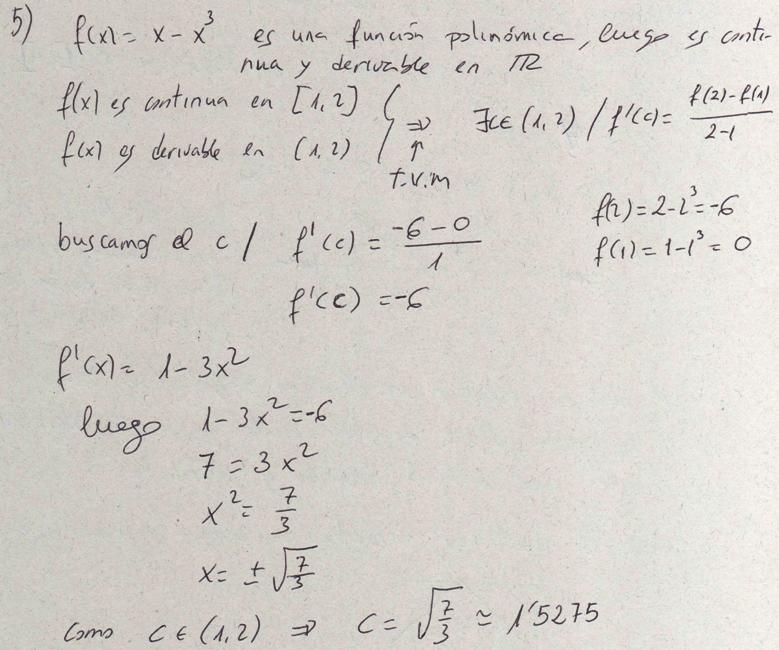 5) f(x) = x - x³ es una función polinómica, luego es conti-
nua y derivable en ℝ
f(x) es continua en [1,2]
f(x) es derivable en (1,2)
⇒
↑
t.v.m
∃c∈(1,2) / f'(c) = (f(2)-f(1))/(2-1)
buscamos el c / f'(c) = (-6-0)/1
f(2)=2-2³=-6
f(1)=1-1³=0
f'(c) = -6
f'(x) = 1-3x²
luego 1-3x²=-6
7 = 3x²
x² = 7/3
x = ±√(7/3)
Como c∈(1,2) ⇒ c = √(7/3) ≃ 1'5275